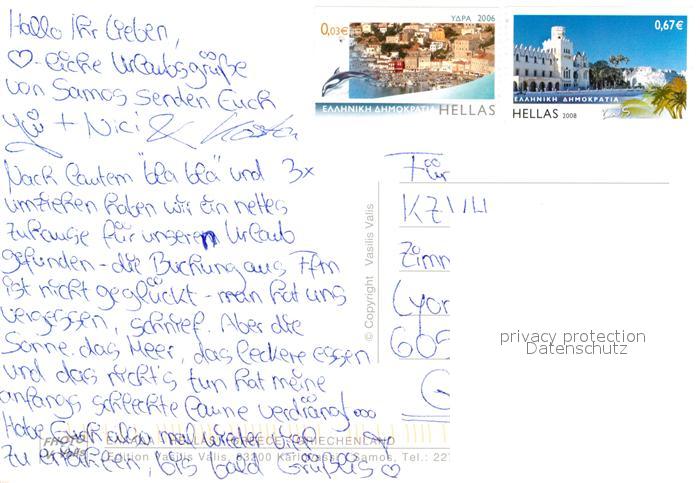 Hallo Ihr Lieben,
♡-liche Urlaubsgrüße
von Samos senden Euch
+ Nici &
Nach lautem "bla blá" und 3x
umziehen haben wir ein nettes
zuhause für unseren Urlaub
gefunden - die Buchung aus Ffm
ist nicht geglückt - man hat uns
vergessen, schnief. Aber die
Sonne, das Meer, das leckere essen
und das nicht's tun hat meine
anfangs schlechte Laune verdräng!...
Habe Euch also mal wieder viel
zu erzählen, bis bald Grüßlis ♡
0,03€
ΥΔΡΑ 2006
ΕΛΛΗΝΙΚΗ ΔΗΜΟΚΡΑΤΙΑ HELLAS
0,67€
ΕΛΛΗΝΙΚΗ ΔΗΜΟΚΡΑΤΙΑ
HELLAS 2008
Für
KZVH
Zimm
Lyon
60
G
© Copyright Vasilis Valis
privacy protection
Datenschutz
Edition Vasilis Valis, 83200 Karlovassi - Samos, Tel.: 227